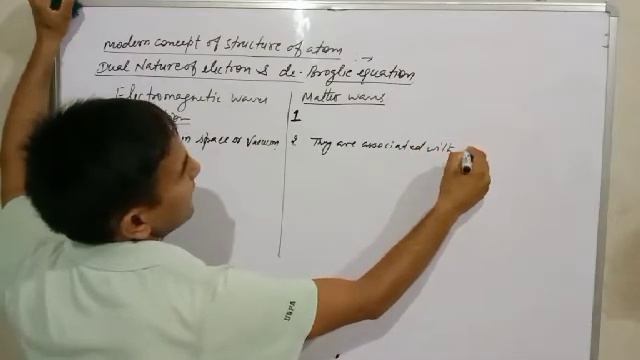 modern concept of structure of atom
Dual Nature of electron & de-Broglie equation
Electromagnetic waves
Matter waves
1
n space or vacuum
2 They are associated with
USPA